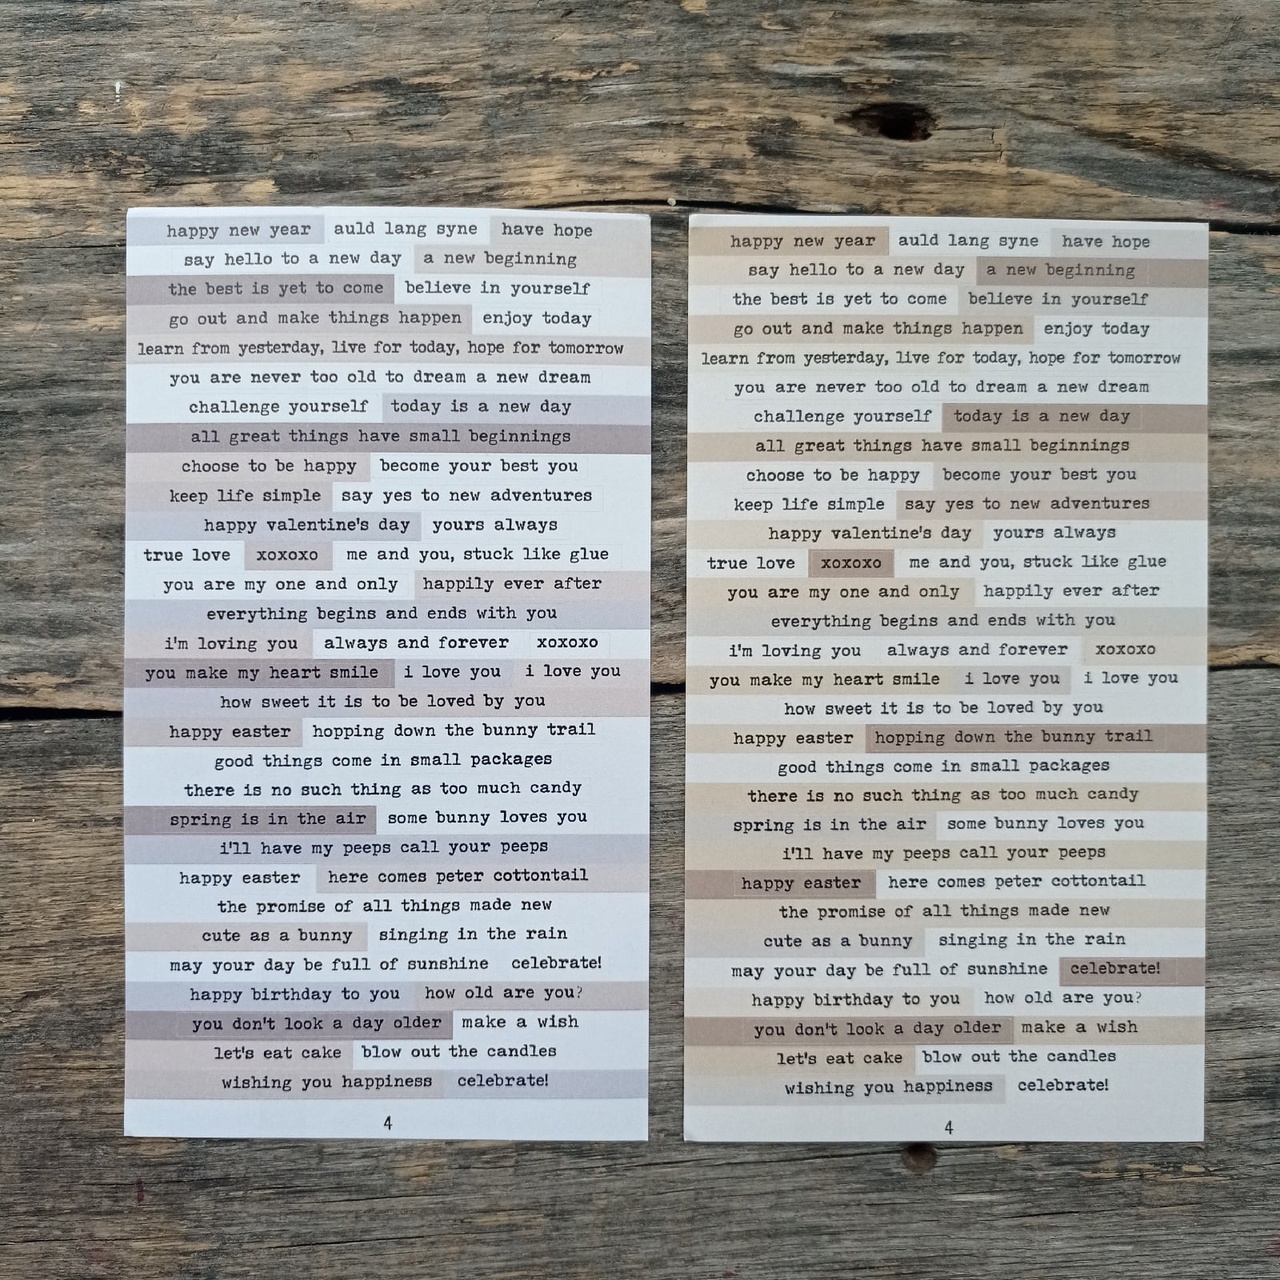 happy new year auld lang syne have hope
say hello to a new day a new beginning
the best is yet to come believe in yourself
go out and make things happen enjoy today
learn from yesterday, live for today, hope for tomorrow
you are never too old to dream a new dream
challenge yourself today is a new day
all great things have small beginnings
choose to be happy become your best you
keep life simple say yes to new adventures
happy valentine's day yours always
true love xoxoxo me and you, stuck like glue
you are my one and only happily ever after
everything begins and ends with you
i'm loving you always and forever xoxoxo
you make my heart smile i love you i love you
how sweet it is to be loved by you
happy easter hopping down the bunny trail
good things come in small packages
there is no such thing as too much candy
spring is in the air some bunny loves you
i'll have my peeps call your peeps
happy easter here comes peter cottontail
the promise of all things made new
cute as a bunny singing in the rain
may your day be full of sunshine celebrate!
happy birthday to you how old are you?
you don't look a day older make a wish
let's eat cake blow out the candles
wishing you happiness celebrate!
4
happy new year auld lang syne have hope
say hello to a new day a new beginning
the best is yet to come believe in yourself
go out and make things happen enjoy today
learn from yesterday, live for today, hope for tomorrow
you are never too old to dream a new dream
challenge yourself today is a new day
all great things have small beginnings
choose to be happy become your best you
keep life simple say yes to new adventures
happy valentine's day yours always
true love xoxoxo me and you, stuck like glue
you are my one and only happily ever after
everything begins and ends with you
i'm loving you always and forever xoxoxo
you make my heart smile i love you i love you
how sweet it is to be loved by you
happy easter hopping down the bunny trail
good things come in small packages
there is no such thing as too much candy
spring is in the air some bunny loves you
i'll have my peeps call your peeps
happy easter here comes peter cottontail
the promise of all things made new
cute as a bunny singing in the rain
may your day be full of sunshine celebrate!
happy birthday to you how old are you?
you don't look a day older make a wish
let's eat cake blow out the candles
wishing you happiness celebrate!
4